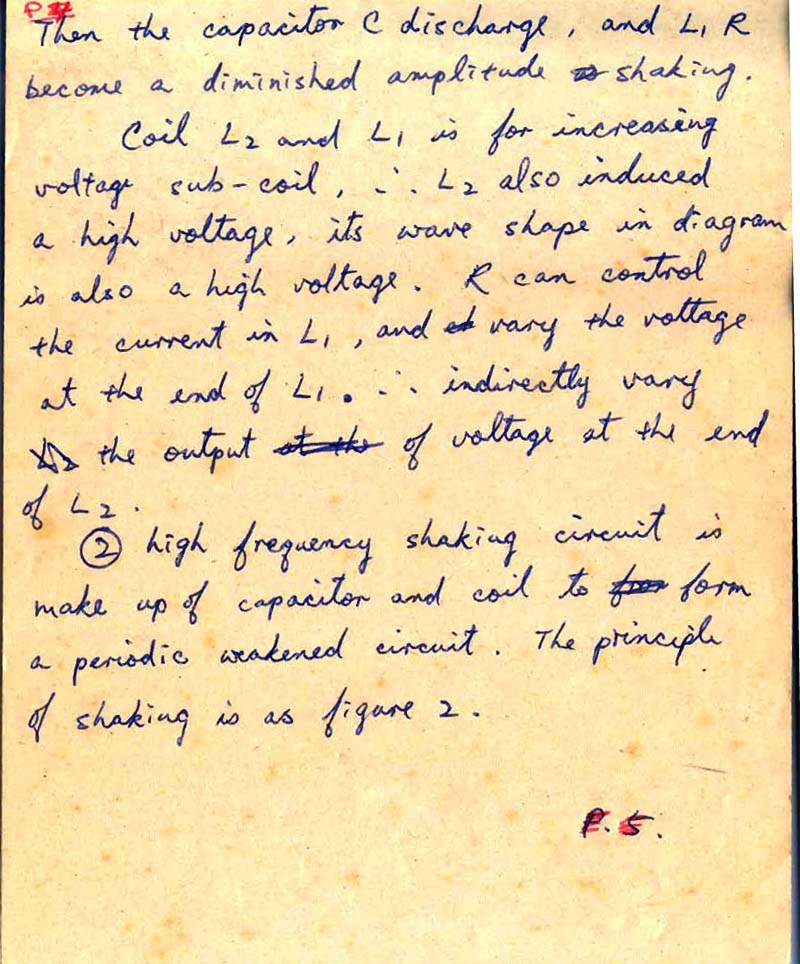 Then the capacitor C discharge, and L1 R
become a diminished amplitude shaking.
Coil L2 and L1 is for increasing
voltage sub-coil, ∴ L2 also induced
a high voltage, its wave shape in diagram
is also a high voltage. R can control
the current in L1, and vary the voltage
at the end of L1. ∴ indirectly vary
the output at the of voltage at the end
of L2.
② high frequency shaking circuit is
make up of capacitor and coil to form
a periodic weakened circuit. The principle
of shaking is as figure 2.
P. 5.